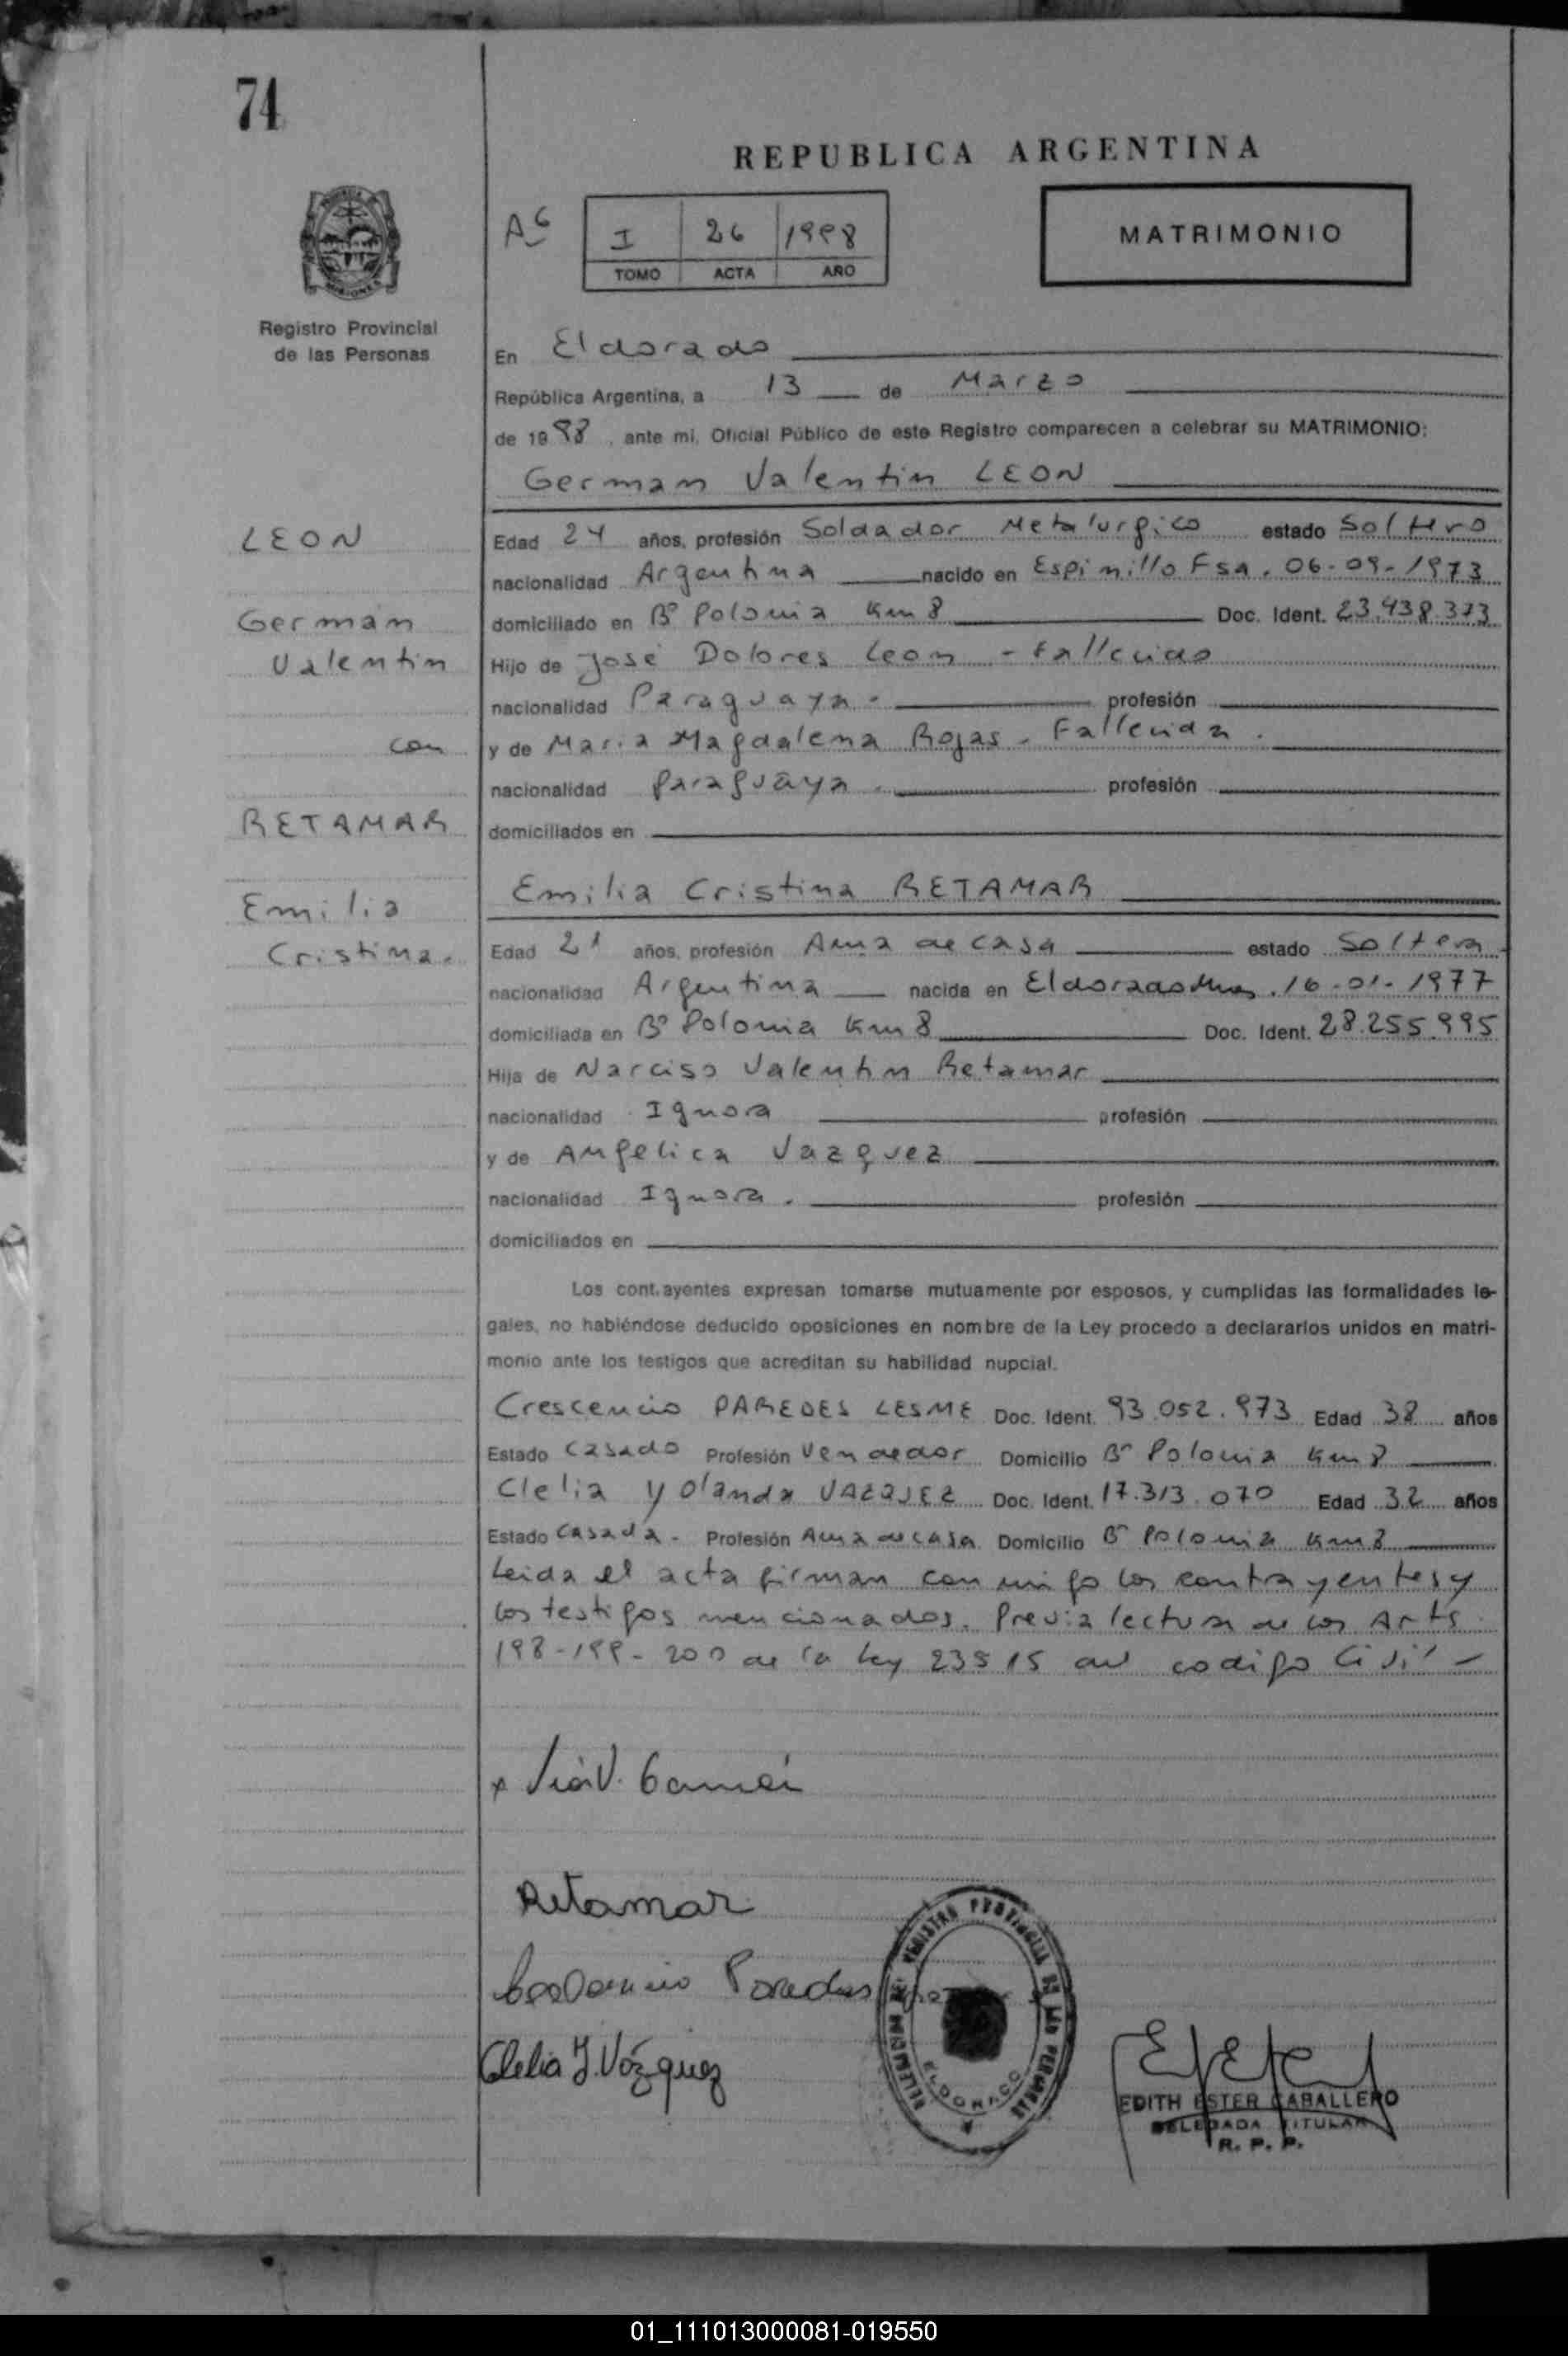 74
REPUBLICA ARGENTINA
I 26 1998
TOMO ACTA AÑO
MATRIMONIO
Registro Provincial
de las Personas
En Eldorado
República Argentina, a 13 de Marzo
de 1998, ante mi, Oficial Público de este Registro comparecen a celebrar su MATRIMONIO:
German Valentin LEON
LEON
German
Valentin
con
RETAMAR
Emilia
Cristina.
Edad 24 años, profesión Soldador Metalurgico estado Soltero
nacionalidad Argentina nacido en Espinillo Fsa. 06-09-1973
domiciliado en Bº Polonia Km 8 Doc. Ident. 23.438.373
Hijo de José Dolores Leon - Fallecido
nacionalidad Paraguaya - profesión
y de Maria Magdalena Rojas - Fallecida.
nacionalidad paraguaya. profesión
domiciliados en
Emilia Cristina RETAMAR
Edad 21 años, profesión Ama de casa estado Soltera
nacionalidad Argentina nacida en Eldorado Mnes. 16-01-1977
domiciliada en Bº Polonia Km 8 Doc. Ident. 28.255.995
Hija de Narciso Valentin Retamar
nacionalidad Ignora profesión
y de Angelica Vazquez
nacionalidad Ignora. profesión
domiciliados en
Los contrayentes expresan tomarse mutuamente por esposos, y cumplidas las formalidades le-
gales, no habiéndose deducido oposiciones en nombre de la Ley procedo a declararlos unidos en matri-
monio ante los testigos que acreditan su habilidad nupcial.
Crescencio PAREDES LESME Doc. Ident. 93.052.973 Edad 38 años
Estado Casado Profesión Vendedor Domicilio Bº Polonia Km 8
Clelia Yolanda VAZQUEZ Doc. Ident. 17.313.070 Edad 32 años
Estado Casada - Profesión Ama de casa Domicilio Bº Polonia Km 8
Leida el acta firman conmigo los contrayentes y
los testigos mencionados. Previa lectura de los Arts
198-199-200 de la Ley 23515 del codigo Civil -
Retamar
Paredes
Clelia Y. Vázquez
REGISTRO PROVINCIAL DE LAS PERSONAS
ELDORADO
EDITH ESTER CABALLERO
DELEGADA TITULAR
R. P. P.
01_111013000081-019550